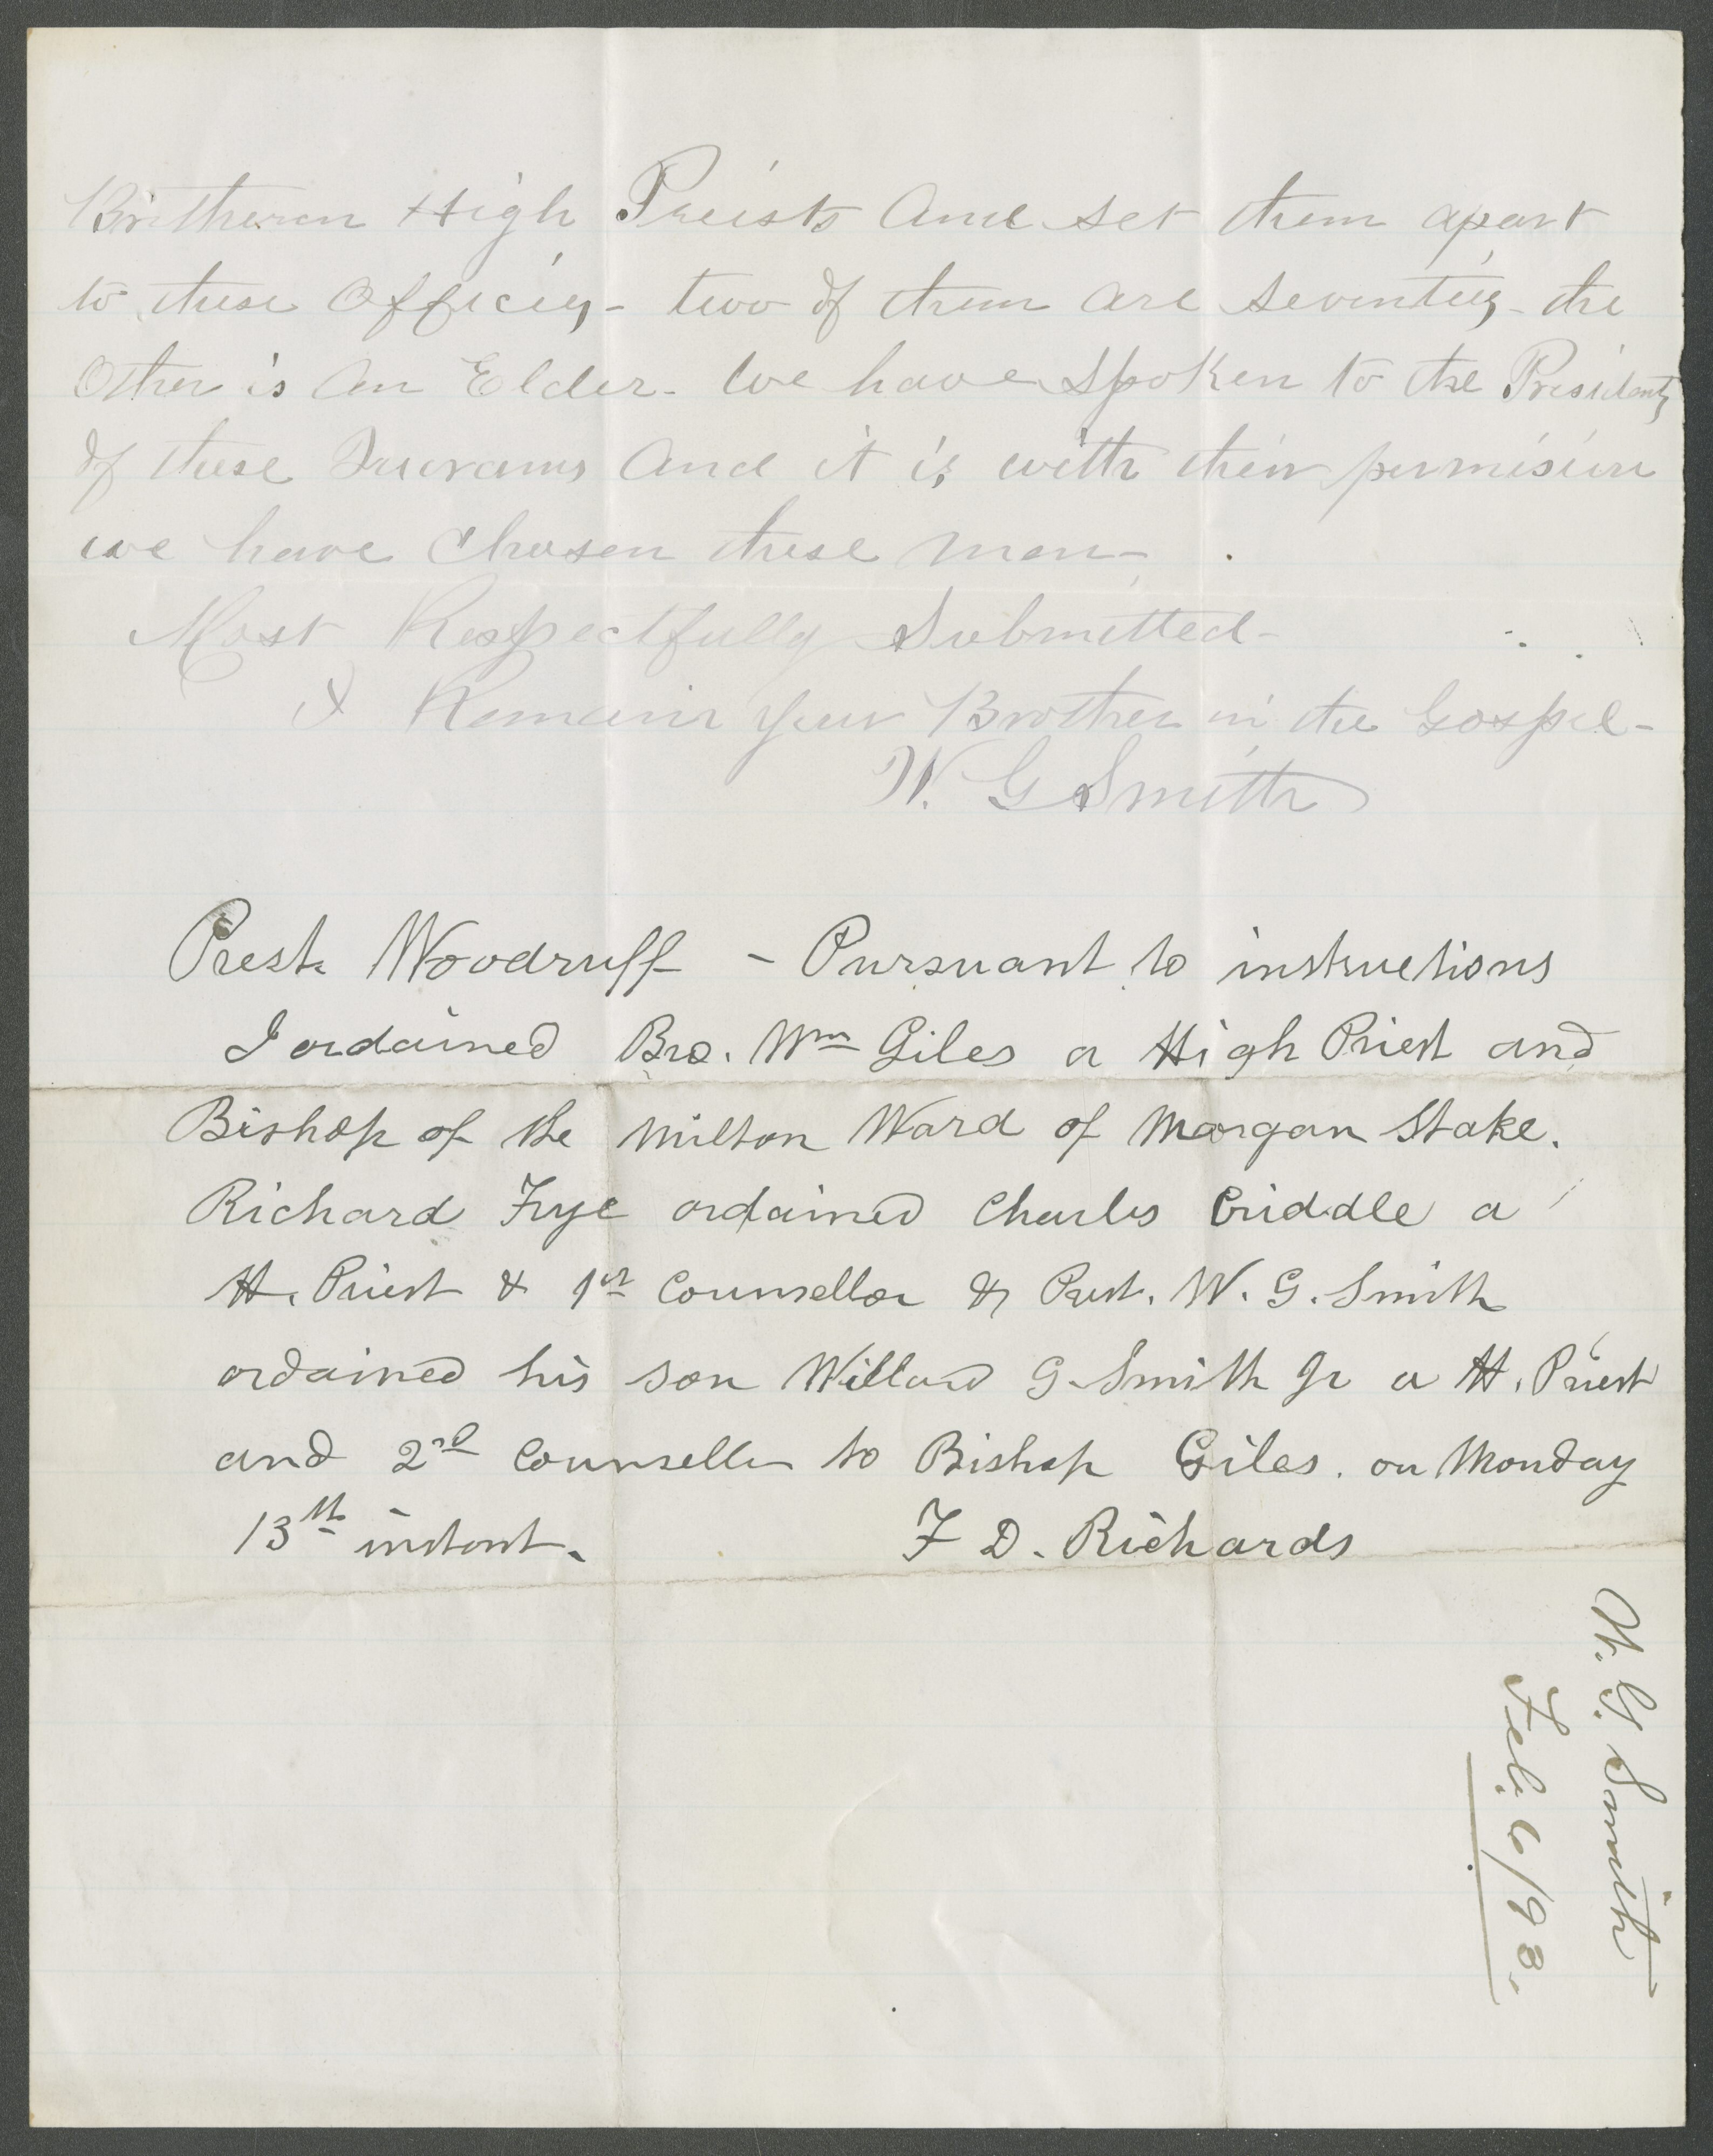 Britheren High Preists And set them apart
to these Officies - two of them are seventies - the
Other is An Elder - we have Spoken to the Presidents
of these Quorams And it is with their permision
we have Chosen these men -
Most Respectfully Submitted -
I Remain your Brother in the Gospel -
W. G Smith
Prest. Woodruff - Pursuant to instructions
I ordained Bro. Wm Giles a High Priest and
Bishop of the Milton Ward of Morgan Stake.
Richard Frye ordained Charles Criddle a
H. Priest & 1st Counsellor & Prest. W. G. Smith
ordained his son Willard G. Smith Jr a H. Priest
and 2nd Counsellor to Bishop Giles. on Monday
13th instant.
F D. Richards
W. G. Smith
Feb. 6/93.